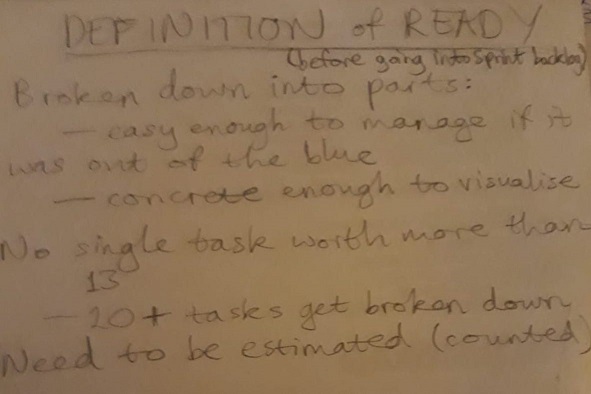 DEFINITION of READY
(before going into sprint backlog)
Broken down into parts:
— easy enough to manage if it
was out of the blue
— concrete enough to visualise
No single task worth more than
13
— 20+ tasks get broken down
Need to be estimated (counted)